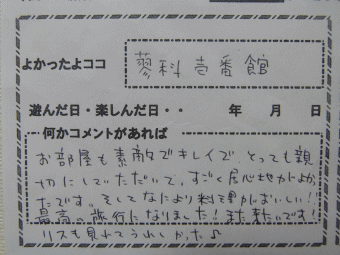 よかったよココ
蓼科壱番館
遊んだ日・楽しんだ日・・ 年 月 日
何かコメントがあれば
お部屋も素敵でキレイで、とっても親
切にしていただいて、すごく居心地がよか
たです。そしてなにより料理がおいしい!
最高の旅行になりました!また来たいです!
リスも見れてうれしかった♪